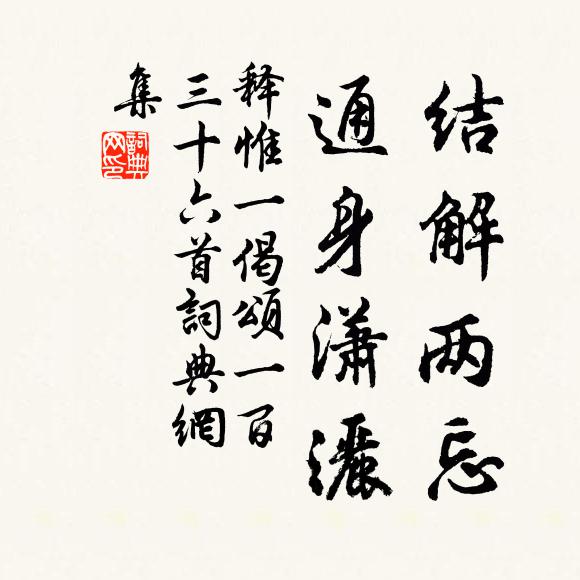 结解两忘
通身潇灑
释惟一偈颂一百
三十六首詞典網
集
詞典
网印